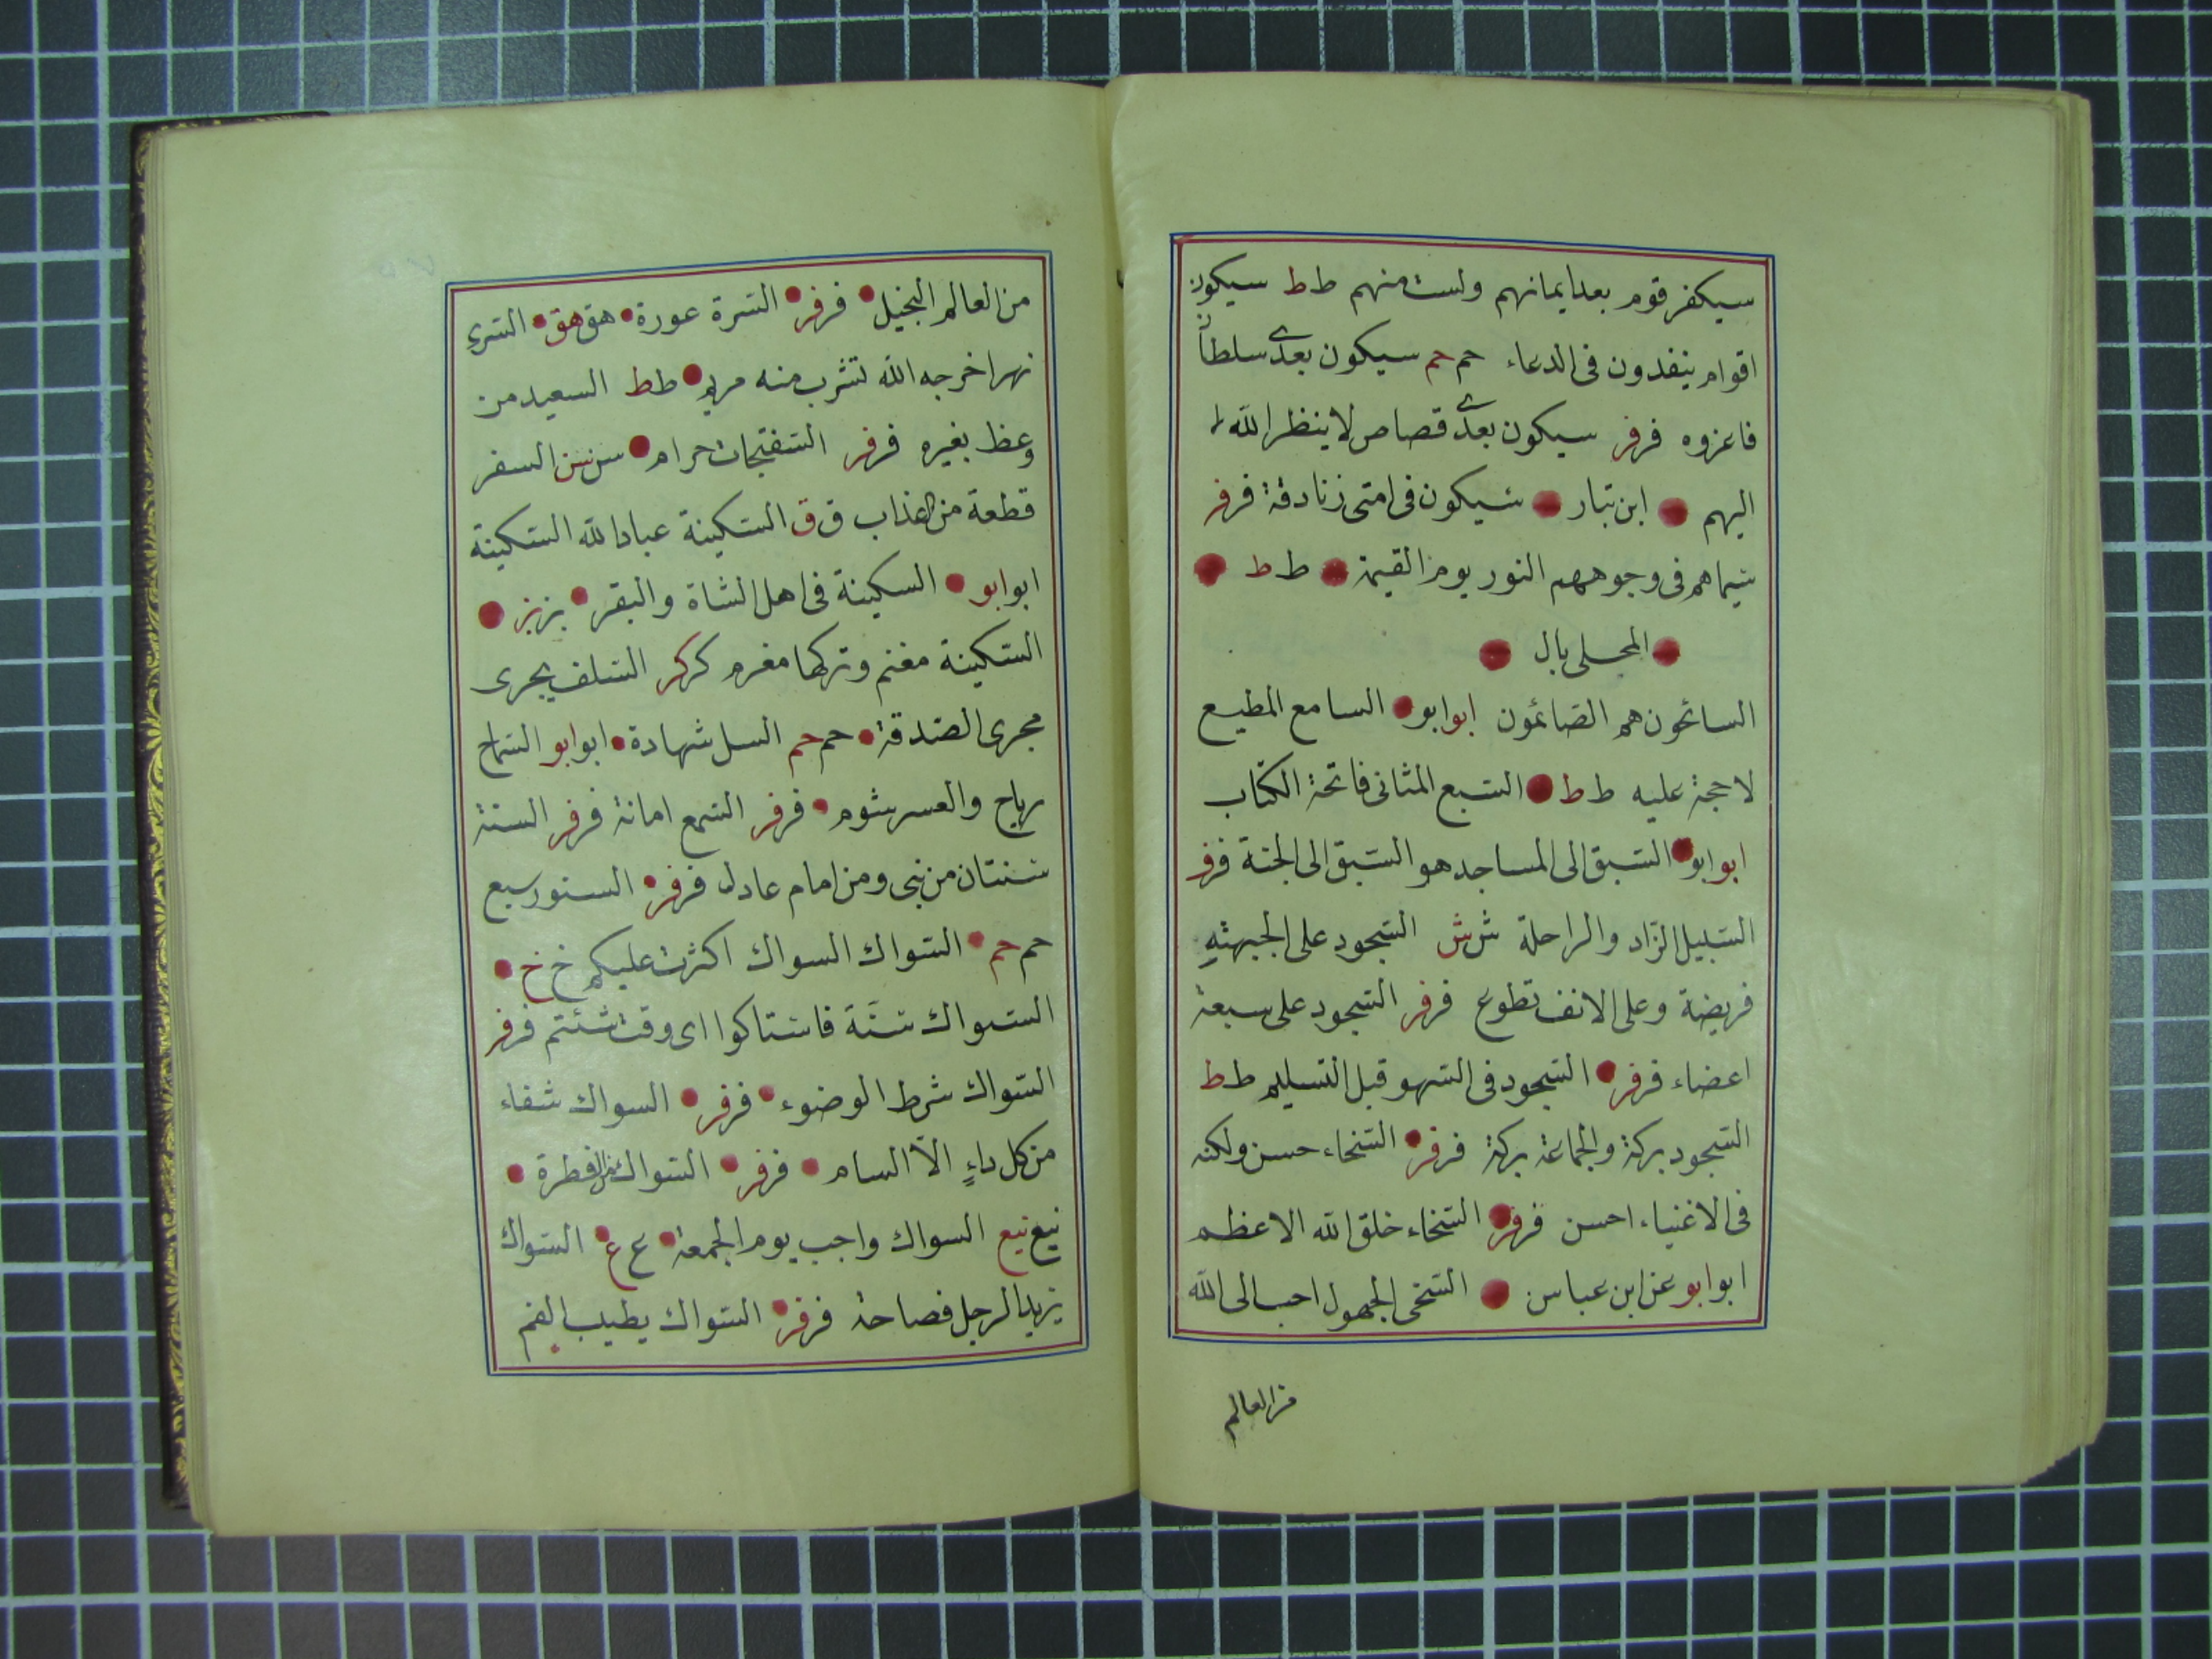 سيكفر قوم بعد ايمانهم ولست منهم ط ط سيكون
اقوام ينفدون فى الدعاء حم حم سيكون بعدى سلطان
فاعزوه فر فر سيكون بعدى قصاص لا ينظر الله
اليهم ابن تبار سيكون فى امتى زنادقة فر فر
سيماهم فى وجوههم النور يوم القيمة ط ط
المحلى بال
السائحون هم الصائمون ابو ابو السامع المطيع
لا حجة عليه ط ط السبع المثانى فاتحة الكتاب
ابو ابو السبق الى المساجد هو السبق الى الجنة فر فر
السبيل الزاد والراحلة ش ش السجود على الجبهة
فريضة وعلى الانف تطوع فر فر السجود على سبعة
اعضاء فر فر السجود فى السهو قبل التسليم ط ط
السجود بركة والجماعة بركة فر فر السخاء حسن ولكنه
فى الاغنياء احسن فر فر السخاء خلق الله الاعظم
ابو ابو عن ابن عباس السخى الجهول احب الى الله
من العالم
من العالم البخيل فر فر السرة عورة هق هق السرى
نهر اخرجه الله لتشرب منه مريم ط ط السعيد من
وعظ بغيره فر فر السفتجات حرام سن سن السفر
قطعة من العذاب ق ق السكينة عباد الله السكينة
ابو ابو السكينة فى اهل الشاة والبقر بز بز
السكينة مغنم وتركها مغرم كر كر السلف يجرى
مجرى الصدقة حم حم السل شهادة ابو ابو السماح
رباح والعسر شوم فر فر السمع امانة فر فر السنة
سنتان من نبى ومن امام عادل فر فر السنور سبع
حم حم السواك السواك اكثرت عليكم خ خ
السواك سنة فاستاكوا اى وقت شئتم فر فر
السواك شرط الوضوء فر فر السواك شفاء
من كل داء الا السام فر فر السواك من الفطرة
نيع نيع السواك واجب يوم الجمعة ع ع السواك
يزيد الرجل فصاحة فر فر السواك يطيب الفم